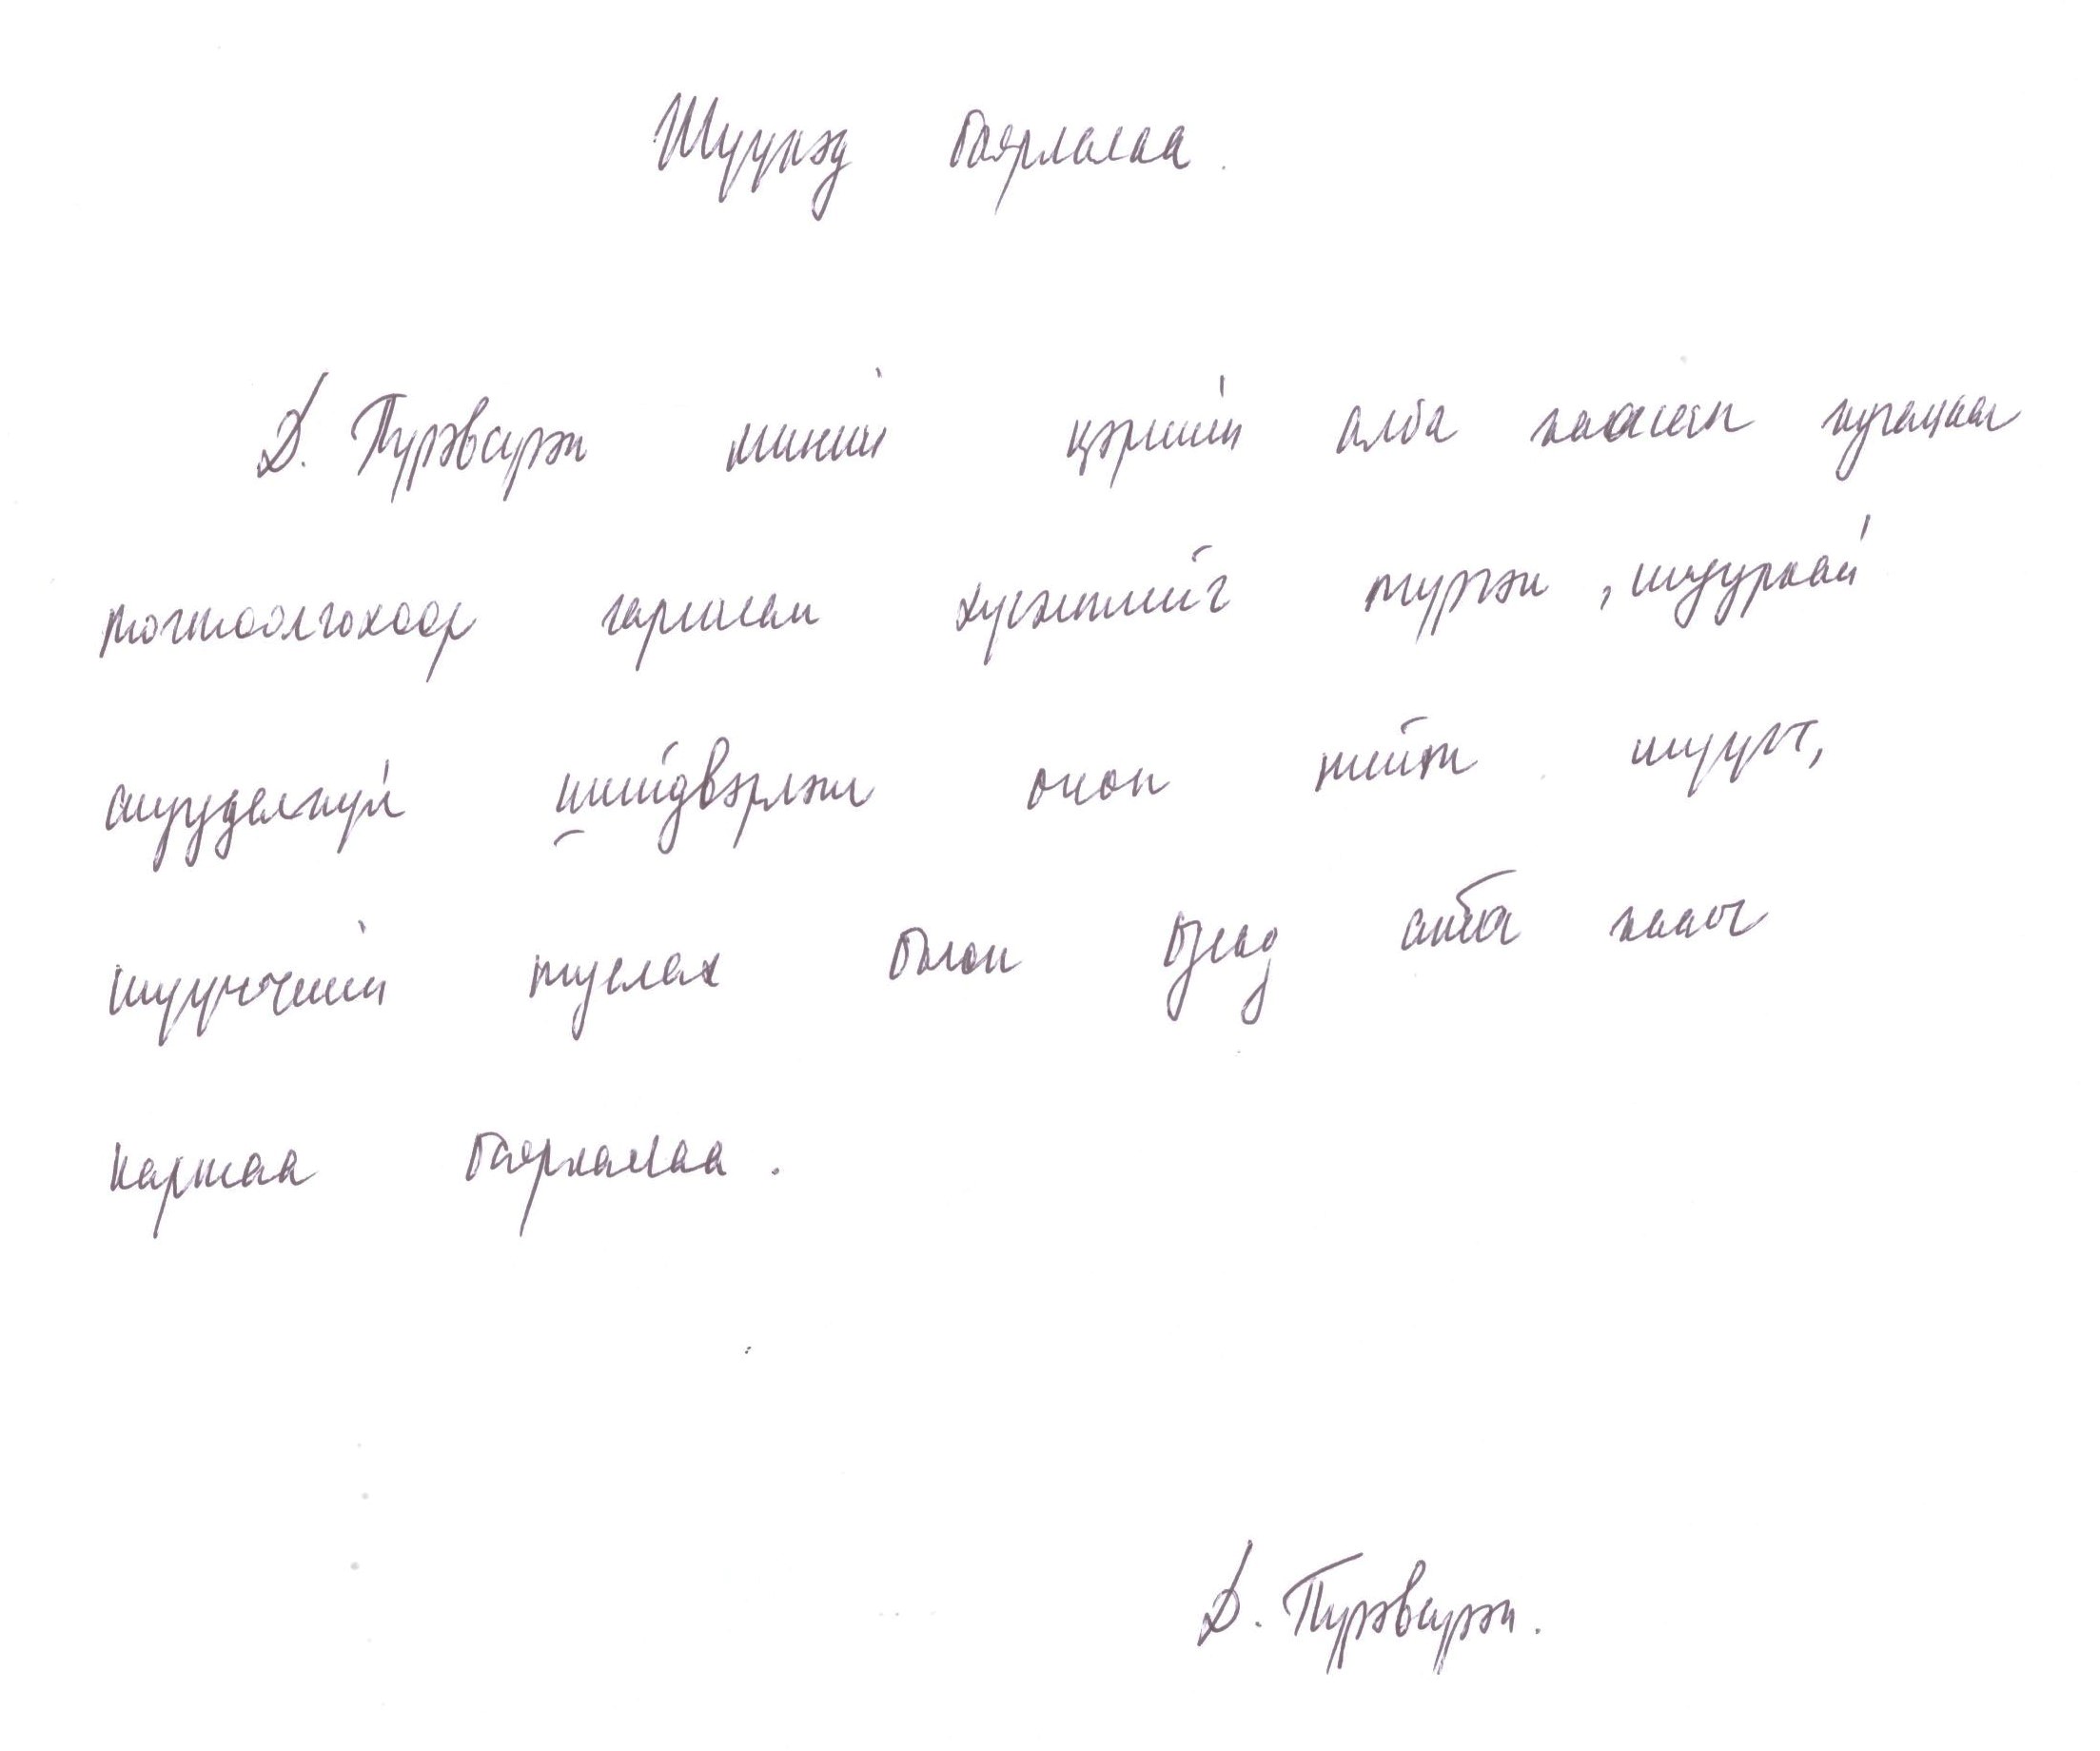 Шүүхэд баярлалаа.
Д. Пүрэвсүрэн миний цэргийн алба хаасан хугацааг
тогтоолгохоор гаргасан хүсэлтийг түргэн, шуурхай
шуудхгүй шийдвэрлэж өгсөн нийт шүүгч,
шүүгчийн туслах болон бусад алба хааг
хартаа баярлалаа.
Д. Пүрэвсүрэн.